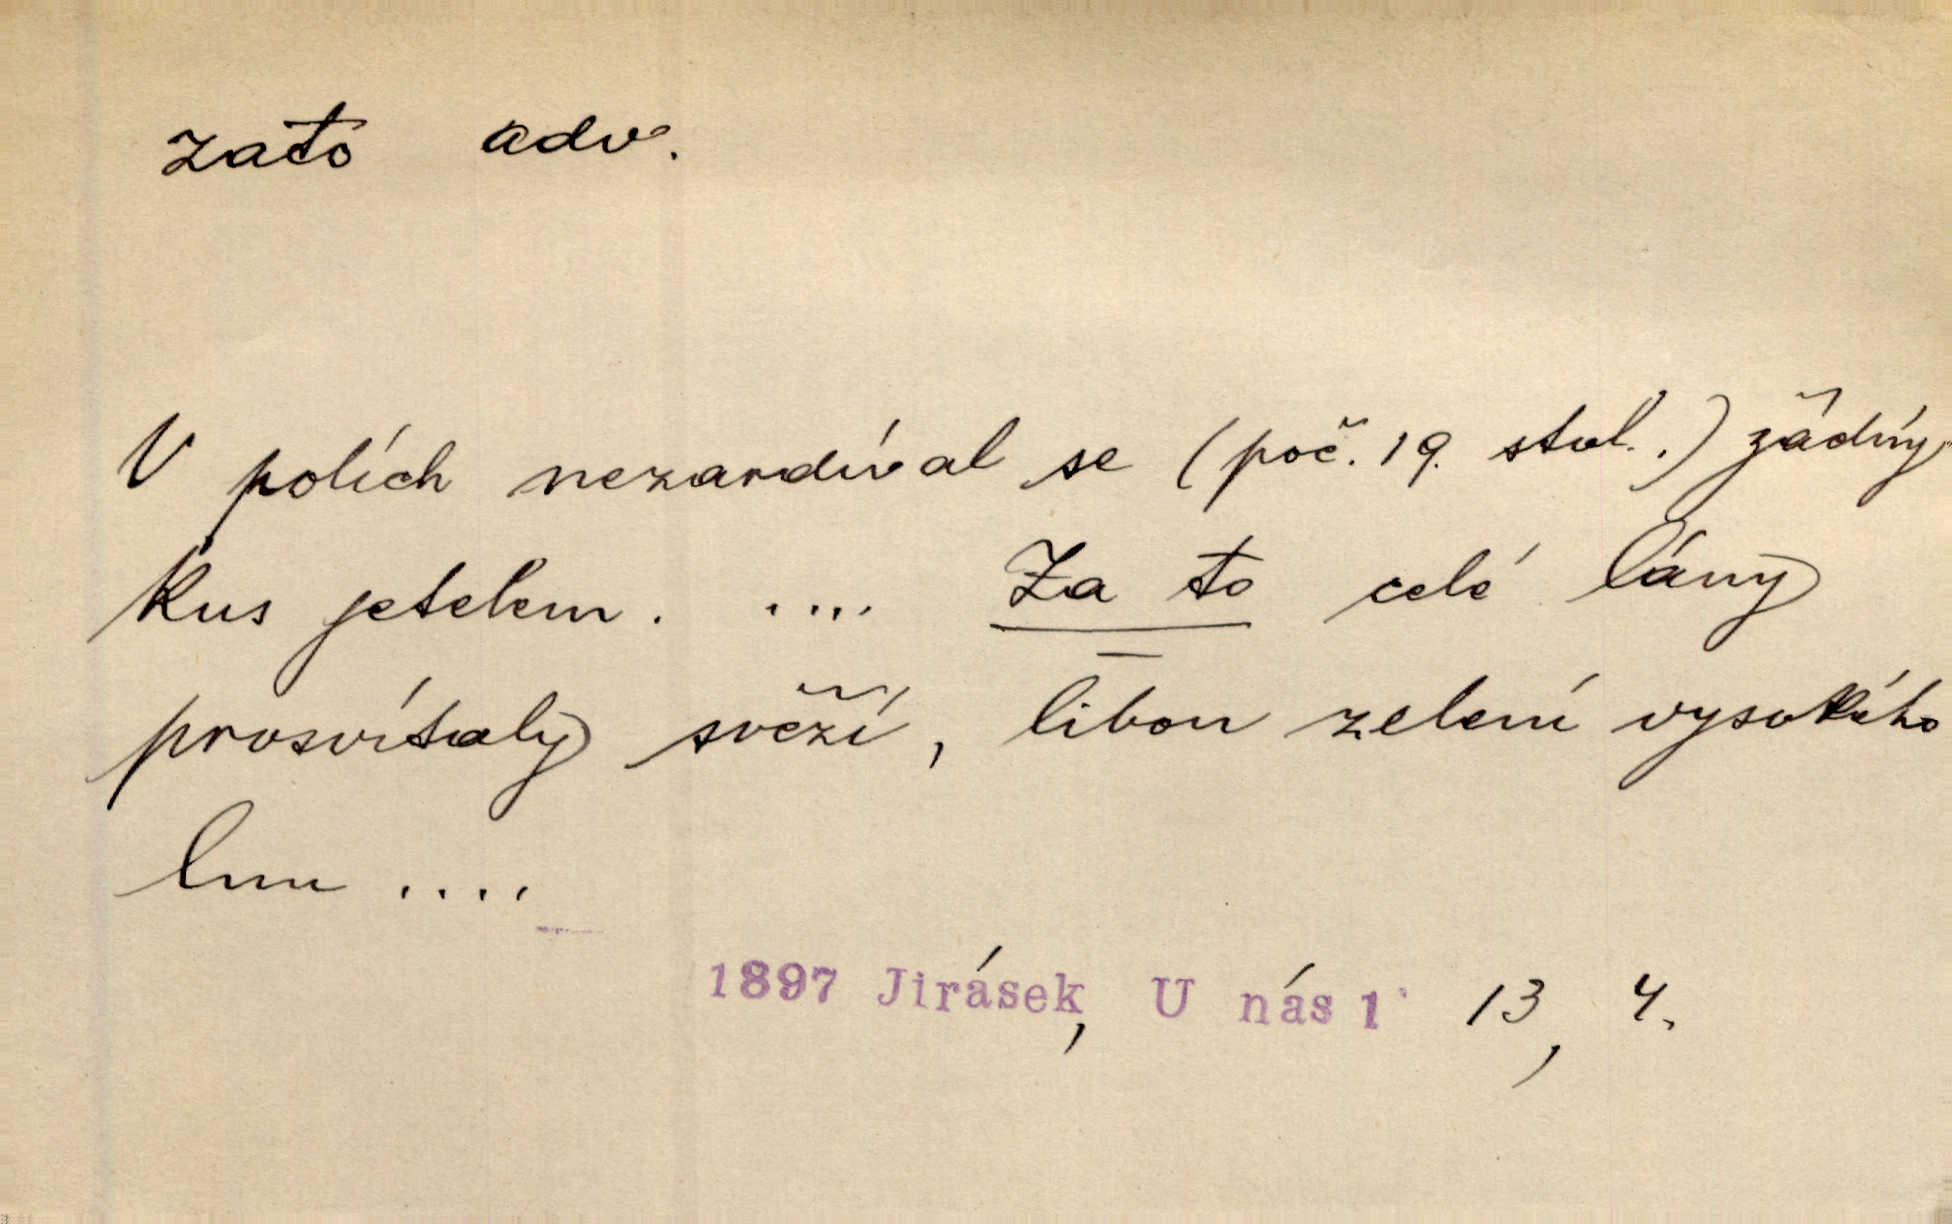 zato adv.
V polích nezardíval se (poč. 19. stol.) žádný
kus jetelem. .... Za to celé lány
prosvítaly svěží, libou zelení vysokého
lnu ....
1897 Jirásek, U nás 1 13, 4.